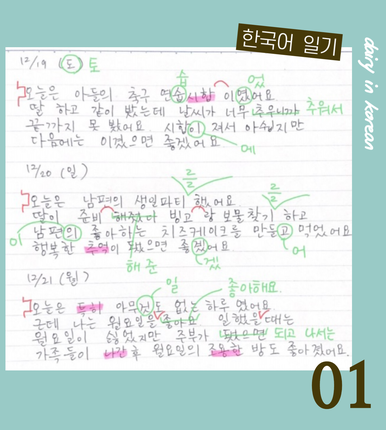 한국어 일기
diary in korean
12/19 (도) 토
습 었
오늘은 아들의 축구 연습시합 이었어요
딸 하고 같이 봤는데 날씨가 너무 추우니까 추워서
끝까지 못 봤어요. 시합이 져서 아쉽지만
에
다음에는 이겼으면 좋겠어요
12/20 (일)
오늘은 남편의 생일파티 했어요
딸이 준비 해줬다 빙고 랑 보물찾기 하고
남편의 좋아하는 치즈케이크를 만들고 먹었어요
이 어
행복한 추억이 됐으면 좋겠어요
해준 겠
12/21 (월)
일 좋아해요.
오늘은 특히 아무것도 없는 하루 였어요
근데 나는 월요일을 좋아요 일했을때는
월요일이 싫었지만 주부가 됐으면 되고 나서는
가족들이 나간 후 월요일의 조용한 방도 좋아졌어요.
01